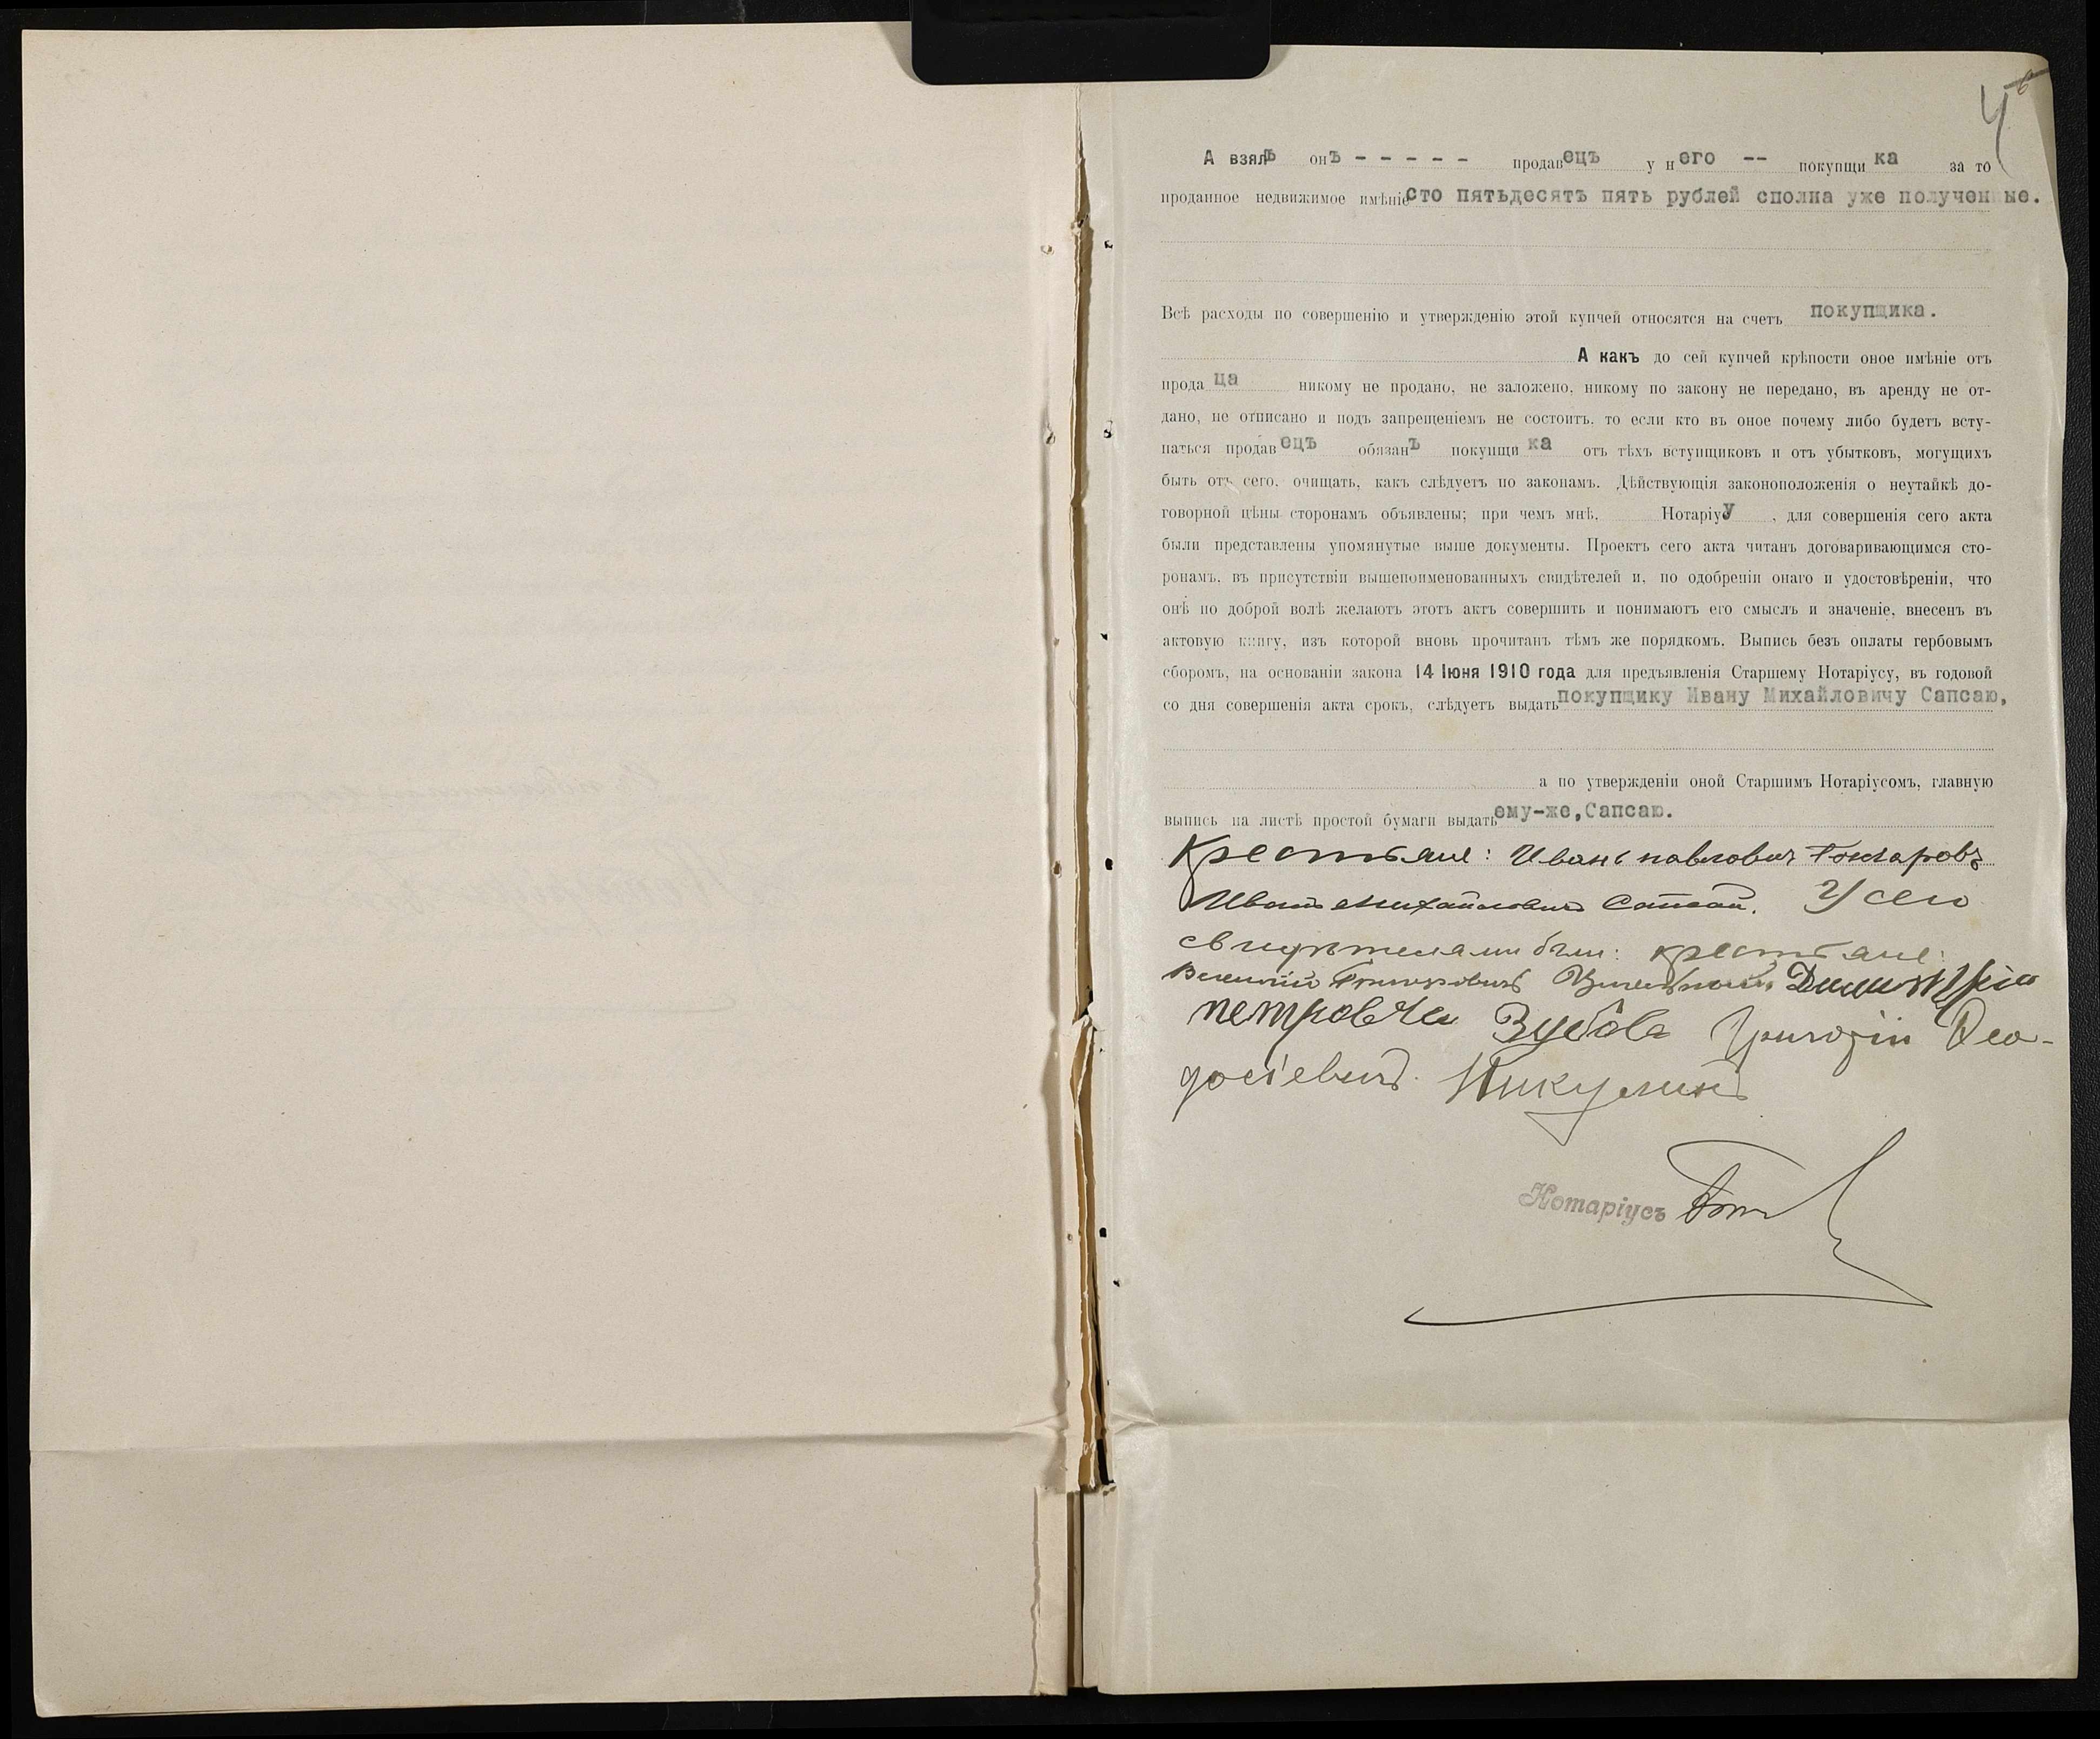 А взялъ онъ - - - - - продавецъ у него -- покупщика за то
проданное недвижимое имѣніе сто пятьдесятъ пять рублей сполна уже полученные.
Всѣ расходы по совершенію и утвержденію этой купчей относятся на счетъ покупщика.
А какъ до сей купчей крѣпости оное имѣніе отъ
продавца никому не продано, не заложено, никому по закону не передано, въ аренду не от-
дано, не отписано и подъ запрещеніемъ не состоитъ, то если кто въ оное почему либо будетъ всту-
паться продавецъ обязанъ покупщика отъ тѣхъ вступщиковъ и отъ убытковъ, могущихъ
быть отъ сего, очищать, какъ слѣдуетъ по законамъ. Дѣйствующія законоположенія о неутайкѣ до-
говорной цѣны сторонамъ объявлены; при чемъ мнѣ, Нотаріусу, для совершенія сего акта
были представлены упомянутые выше документы. Проектъ сего акта читанъ договаривающимся сто-
ронамъ, въ присутствіи вышепоименованныхъ свидѣтелей и, по одобреніи онаго и удостовѣреніи, что
онѣ по доброй волѣ желаютъ этотъ актъ совершить и понимаютъ его смыслъ и значеніе, внесенъ въ
актовую книгу, изъ которой вновь прочитанъ тѣмъ же порядкомъ. Выпись безъ оплаты гербовымъ
сборомъ, на основаніи закона 14 Іюня 1910 года для предъявленія Старшему Нотаріусу, въ годовой
со дня совершенія акта срокъ, слѣдуетъ выдать покупщику Ивану Михайловичу Сапсаю,
а по утвержденіи оной Старшимъ Нотаріусомъ, главную
выпись на листѣ простой бумаги выдать ему-же, Сапсаю.
Крестьяне: Иванъ павловичъ Гончаровъ
Иванъ Михайловичъ Сапсай. У сего
свидѣтелями были: крестьяне:
Василій Григорьевичъ Димитрій
петровичъ Зубовъ Григорій Ѳео-
досіевичъ Никулинъ
Нотаріусъ